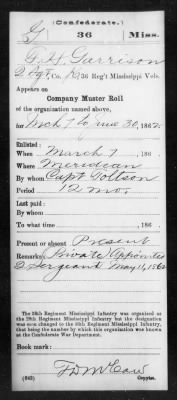 (Confederate.)
G 36 Miss.
G. H. Garrison
2 Sgt, Co. K, 36 Reg't Mississippi Vols.
Appears on
Company Muster Roll
of the organization named above,
for Mch 7 to June 30, 1862.
Enlisted:
When March 7, 186 .
Where Meridian
By whom Capt
Period 12 mos.
Last paid:
By whom
To what time , 186 .
Present or absent Present
Remarks: Private Appointed
2 Sergeant May 11, 1862
The 28th Regiment Mississippi Infantry was organized as
the 28th Regiment Mississippi Infantry but the designation
was soon changed to the 36th Regiment Mississippi
Infantry, that being the number by which it was recognized at the
Confederate War Department.
Book mark:
(642) Copyist.